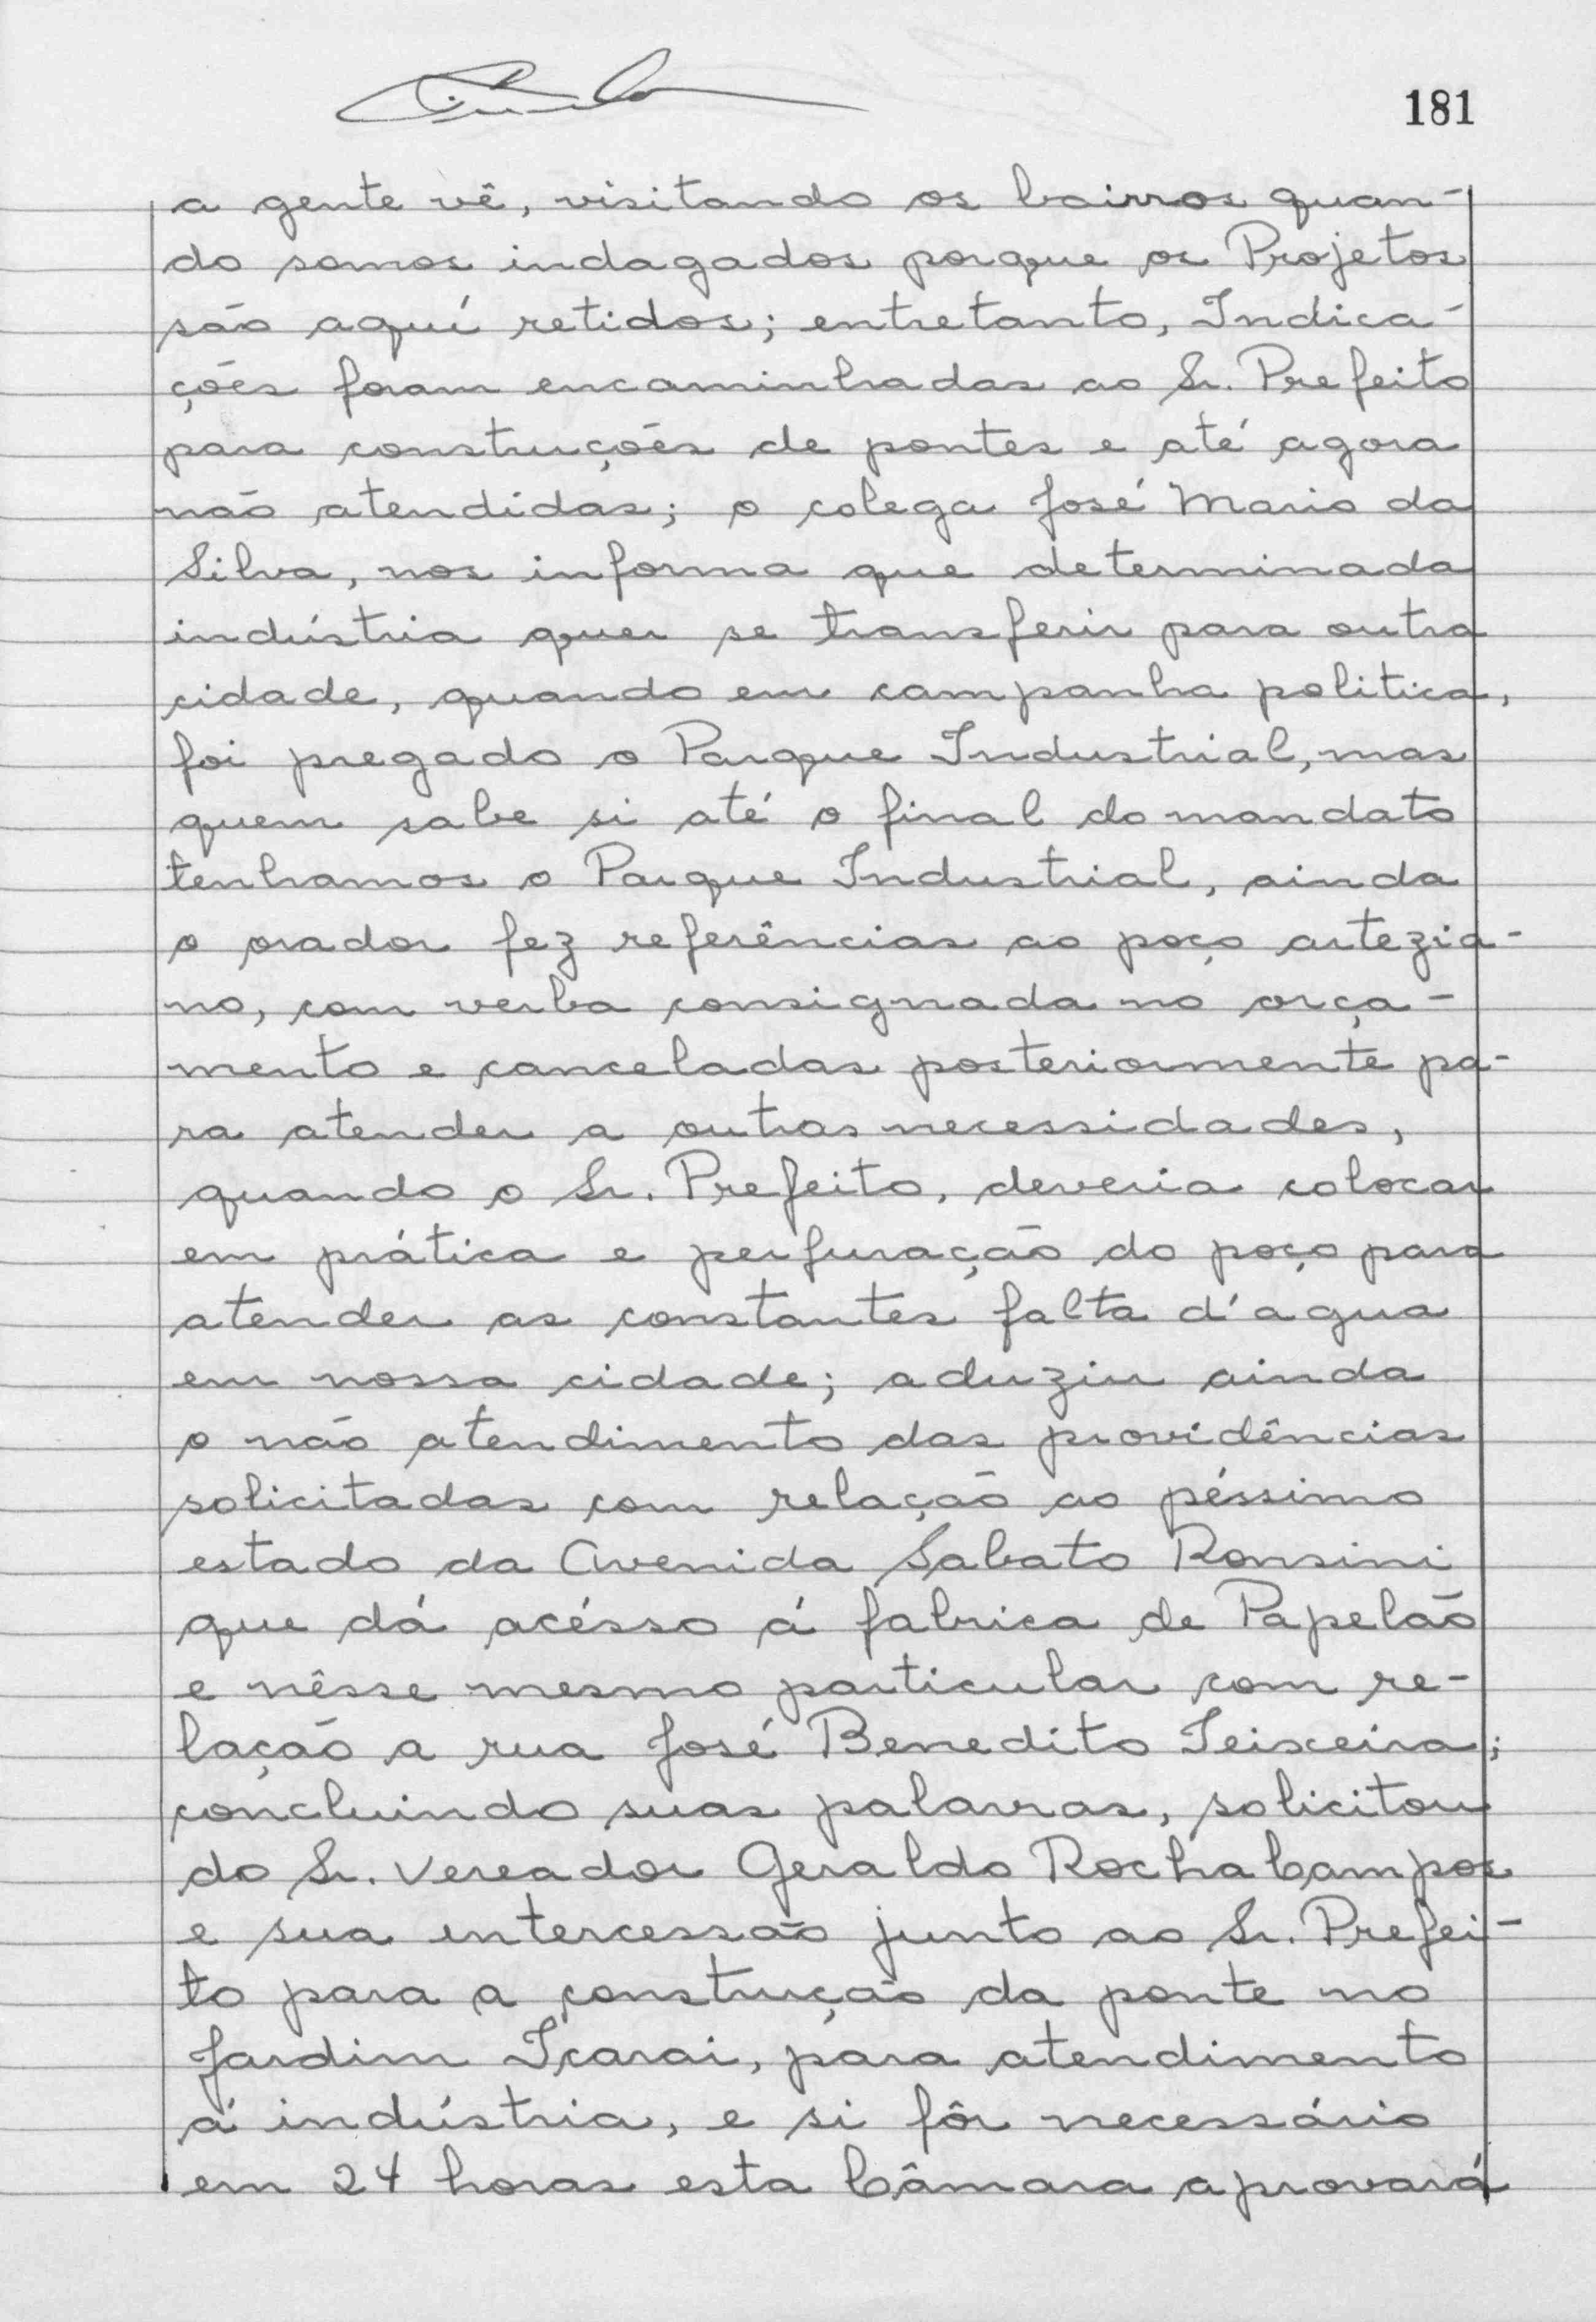 181
a gente vê, visitando os bairros quan-
do somos indagados porque os Projetos
são aquí retidos; entretanto, Indica-
ções foram encaminhadas ao Sr. Prefeito
para construções de pontes e até agora
não atendidas; o colega José Mario da
Silva, nos informa que determinada
indústria quer se transferir para outra
cidade, quando em campanha politica,
foi pregado o Parque Industrial, mas
quem sabe si até o final do mandato
tenhamos o Parque Industrial, ainda
o orador fez referências ao poço artezia-
no, com verba consignada no orça-
mento e canceladas posteriormente pa-
ra atender a outras necessidades,
quando o Sr. Prefeito, deveria colocar
em prática e perfuração do poço para
atender as constantes falta d'agua
em nossa cidade; aduziu ainda
o não atendimento das providências
solicitadas com relação ao péssimo
estado da Avenida Sabato Ronsini
que dá acésso á fabrica de Papelão
e nêsse mesmo particular com re-
lação a rua José Benedito Teixeira;
concluindo suas palavras, solicitou
do Sr. Vereador Geraldo Rocha Campos
e sua intercessão junto ao Sr. Prefei-
to para a construção da ponte no
Jardim Içarai, para atendimento
á indústria, e si fôr necessário
em 24 horas esta Câmara aprovará